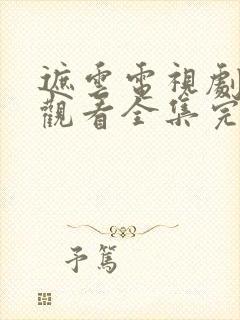 遮雲電視劇
觀看全集完
予篤